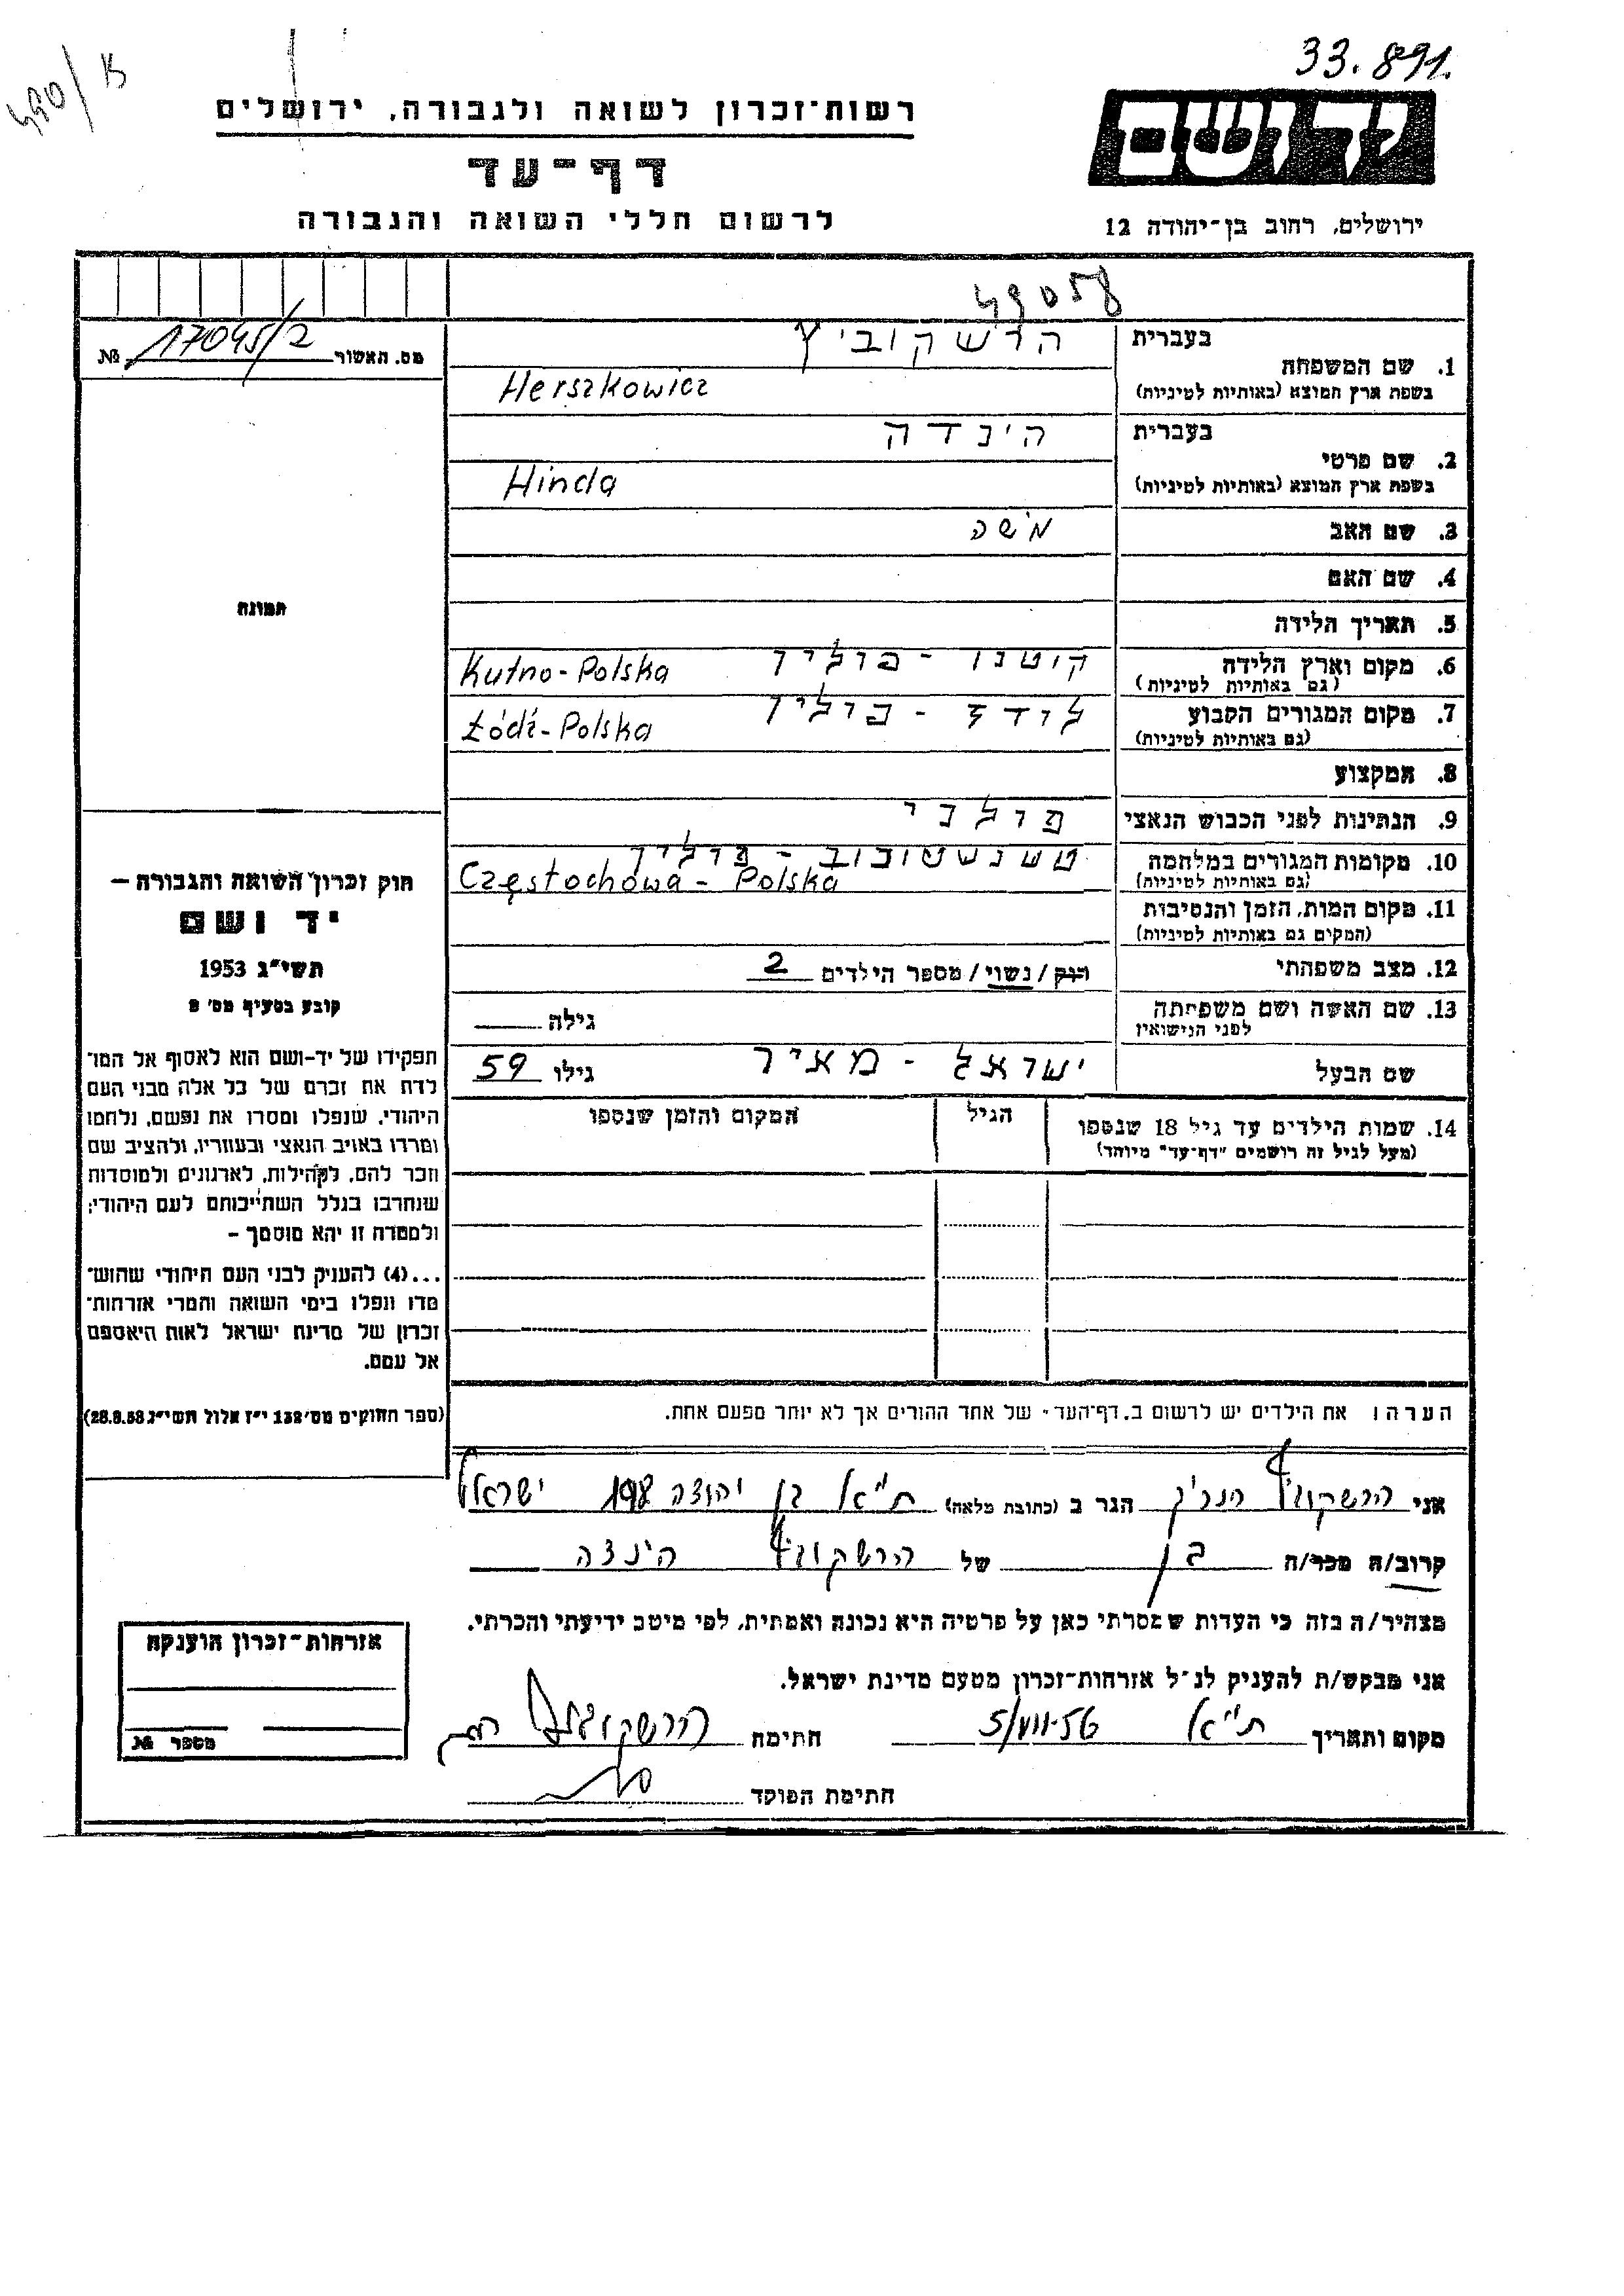 33.891.
490/
רשות־זכרון לשואה ולגבורה, ירושלים
יד ושם
דף־עד
לרשום חללי השואה והגבורה
ירושלים, רחוב בן־יהודה 12
49058
מס. האשור 17045/2 №
1. שם המשפחה
בעברית
הרשקוביץ
בשפת ארץ המוצא (באותיות לטיניות)
Herszkowicz
2. שם פרטי
בעברית
הינדה
בשפת ארץ המוצא (באותיות לטיניות)
Hinda
3. שם האב
משה
4. שם האם
5. תאריך הלידה
6. מקום וארץ הלידה
(גם באותיות לטיניות)
קוטנו - פולין
Kutno - Polska
7. מקום המגורים הקבוע
(גם באותיות לטיניות)
לודז - פולין
Łódź - Polska
8. המקצוע
9. הנתינות לפני הכבוש הנאצי
פולני
10. מקומות המגורים במלחמה
(גם באותיות לטיניות)
טשנשטוכוב - פולין
Częstochowa - Polska
11. מקום המות, הזמן והנסיבות
(המקום גם באותיות לטיניות)
12. מצב משפחתי
רווק/נשוי/ מספר הילדים 2
13. שם האשה ושם משפחתה
לפני הנישואין
גילה
שם הבעל
ישראל - מאיר
גילו 59
14. שמות הילדים עד גיל 18 שנספו
(מעל לגיל זה רושמים "דף־עד" מיוחד)
הגיל
המקום והזמן שנספו
תמונה
חוק זכרון השואה והגבורה —
יד ושם
תשי"ג 1953
קובע בסעיף מס' 2
תפקידו של יד-ושם הוא לאסוף אל המו־
לדת את זכרם של כל אלה מבני העם
היהודי, שנפלו ומסרו את נפשם, נלחמו
ומרדו באויב הנאצי ובעוזריו, ולהציב שם
וזכר להם, לקהילות, לארגונים ולמוסדות
שנחרבו בגלל השתייכותם לעם היהודי;
ולמטרה זו יהא מוסמך —
...(4) להעניק לבני העם היהודי שהוש־
מדו ונפלו בימי השואה והמרי אזרחות־
זכרון של מדינת ישראל לאות היאספם
אל עמם.
(ספר החוקים מס' 132 י"ז אלול תשי"ג 28.8.53)
הערה: את הילדים יש לרשום ב"דף־העד" של אחד ההורים אך לא יותר מפעם אחת.
אני הרשקוביץ הנריך הגר ב (כתובת מלאה) ת"א בן יהודה 198 ישראל
קרוב/ה מכר/ה בן של הרשקוביץ הינדה
מצהיר/ה בזה כי העדות שמסרתי כאן על פרטיה היא נכונה ואמתית, לפי מיטב ידיעתי והכרתי.
אני מבקש/ת להעניק לנ"ל אזרחות־זכרון מטעם מדינת ישראל.
מקום ותאריך ת"א 5/VII-56 חתימה הרשקוביץ
חתימת הפוקד
אזרחות־זכרון הוענקה
מספר №